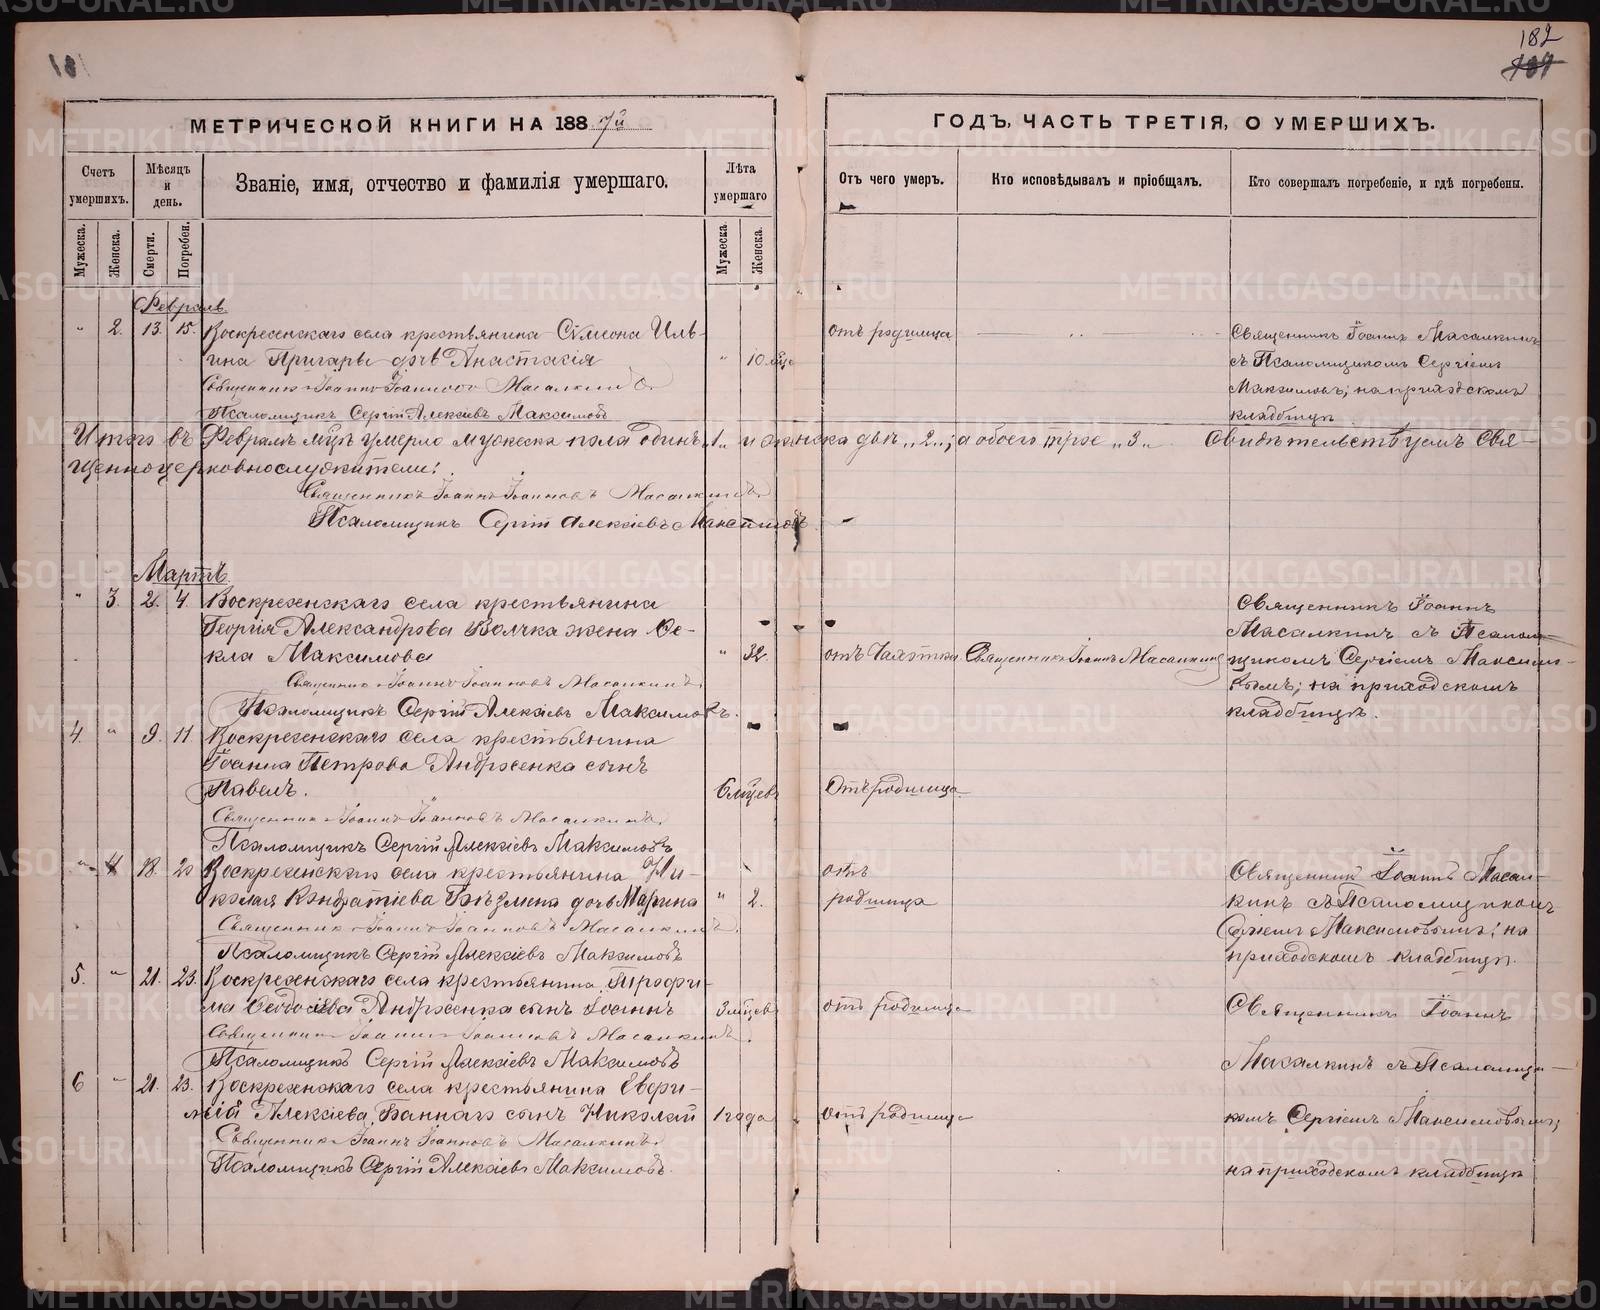 181
182
МЕТРИЧЕСКОЙ КНИГИ НА 1887й
ГОДЪ, ЧАСТЬ ТРЕТІЯ, О УМЕРШИХЪ.
Счетъ умершихъ.
Мѣсяцъ и день.
Званіе, имя, отчество и фамилія умершаго.
Лѣта умершаго
Отъ чего умеръ.
Кто исповѣдывалъ и пріобщалъ.
Кто совершалъ погребеніе, и гдѣ погребены.
Мужеска.
Женска.
Смерти.
Погребен.
Мужеска
Женска.
Февраль
" 2. 13. 15. Воскресенскаго села крестьянина Сѵмеона Иль-
ина дочь Анастасія " 10 мѣс
Священникъ Іоаннъ Іоанновъ Масалкинъ
Псаломщикъ Сергій Алексіевъ Максимовъ
отъ родимца
Священникъ Іоаннъ Масалкинъ
съ Псаломщикомъ Сергіемъ
Максимовъ; на приходскомъ
кладбищѣ
Итого въ Февралѣ мцѣ умерло мужеска пола одинъ „1„ и женска двѣ „2„; а обоего трое „3„ Свидѣтельствуемъ Свя-
щенноцерковнослужители:
Священникъ Іоаннъ Іоанновъ Масалкинъ
Псаломщикъ Сергій Алексіевъ Максимовъ
Мартъ
" 3. 2. 4. Воскресенскаго села крестьянина
Георгія Александрова Волчка жена Ѳе-
кла Максимова " 32.
Священникъ Іоаннъ Іоанновъ Масалкинъ
Псаломщикъ Сергій Алексіевъ Максимовъ.
отъ Чахотки
Священникъ Іоаннъ Масалкинъ
Священникъ Іоаннъ
Масалкинъ съ Псалом-
щикомъ Сергіемъ Максимо-
вымъ; на приходскомъ
кладбищѣ.
4. " 9. 11. Воскресенскаго села крестьянина
Іоанна Петрова Андрѣенка сынъ
Павелъ. 6 мѣцевъ
Священникъ Іоаннъ Іоанновъ Масалкинъ
Псаломщикъ Сергій Алексіевъ Максимовъ
Отъ родимца
" 4 18. 20 Воскресенскаго села крестьянина Ни-
колая Кондратіева дочь Марина " 2.
Священникъ Іоаннъ Іоанновъ Масалкинъ
Псаломщикъ Сергій Алексіевъ Максимовъ
отъ
родимца
Священникъ Іоаннъ Масал-
кинъ съ Псаломщикомъ
Сергіемъ Максимовымъ; на
приходскомъ кладбищѣ.
5. " 21. 23. Воскресенскаго села крестьянина Трофи-
ма Ѳеодосіева Андрѣенка сынъ Іоаннъ 3 мѣцевъ
Священникъ Іоаннъ Іоанновъ Масалкинъ
Псаломщикъ Сергій Алексіевъ Максимовъ
отъ родимца
Священникъ Іоаннъ
Масалкинъ съ Псаломщи-
6 " 21. 23. Воскресенскаго села крестьянина Евфи-
мій Алексіева сынъ Николай 1 года
Священникъ Іоаннъ Іоанновъ Масалкинъ
Псаломщикъ Сергій Алексіевъ Максимовъ.
отъ родимца
комъ Сергіемъ Максимовымъ;
на приходскомъ кладбищѣ
METRIKI.GASO-URAL.RU